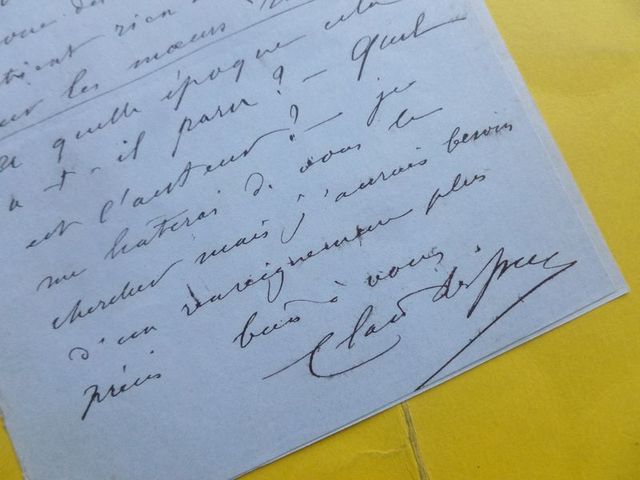 rien
sur les mœurs
a quelle époque cela
a t-il paru? - Quel
est l'auteur? - je
me hâterai de vous le
chercher mais j'aurais besoin
d'un renseignement plus
précis bien à vous